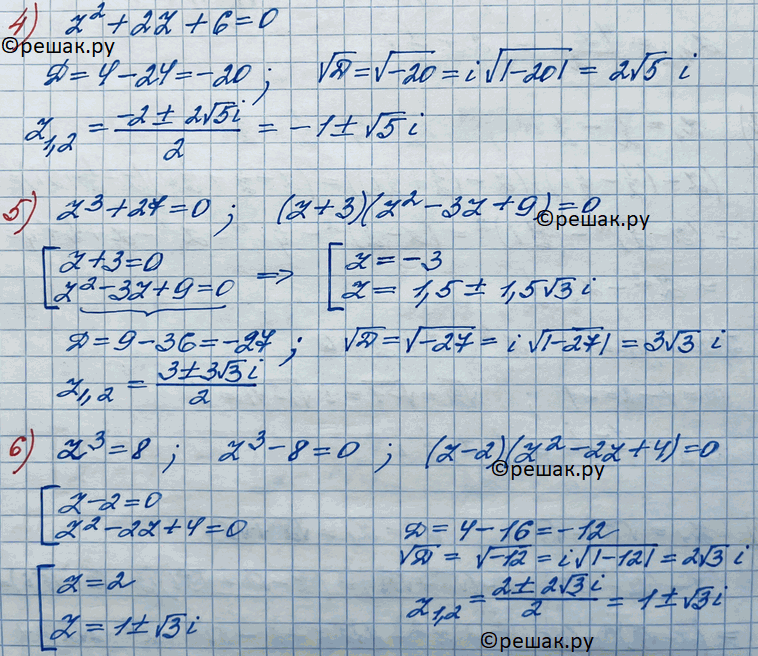 4) z² + 2z + 6 = 0
©решак.ру
D = 4 − 24 = −20 ; √D = √−20 = i √|−20| = 2√5 i
z₁,₂ = (−2 ± 2√5 i)/2 = −1 ± √5 i
5) z³ + 27 = 0 ; (z + 3)(z² − 3z + 9) = 0
©решак.ру
[ z + 3 = 0 ⇒ [ z = −3
z² − 3z + 9 = 0 z = 1,5 ± 1,5√3 i
D = 9 − 36 = −27 ; √D = √−27 = i √|−27| = 3√3 i
z₁,₂ = (3 ± 3√3 i)/2
6) z³ = 8 ; z³ − 8 = 0 ; (z − 2)(z² − 2z + 4) = 0
©решак.ру
[ z − 2 = 0
z² − 2z + 4 = 0
D = 4 − 16 = −12
√D = √−12 = i √|−12| = 2√3 i
[ z = 2
z = 1 ± √3 i
z₁,₂ = (2 ± 2√3 i)/2 = 1 ± √3 i
©решак.ру